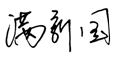 满新国